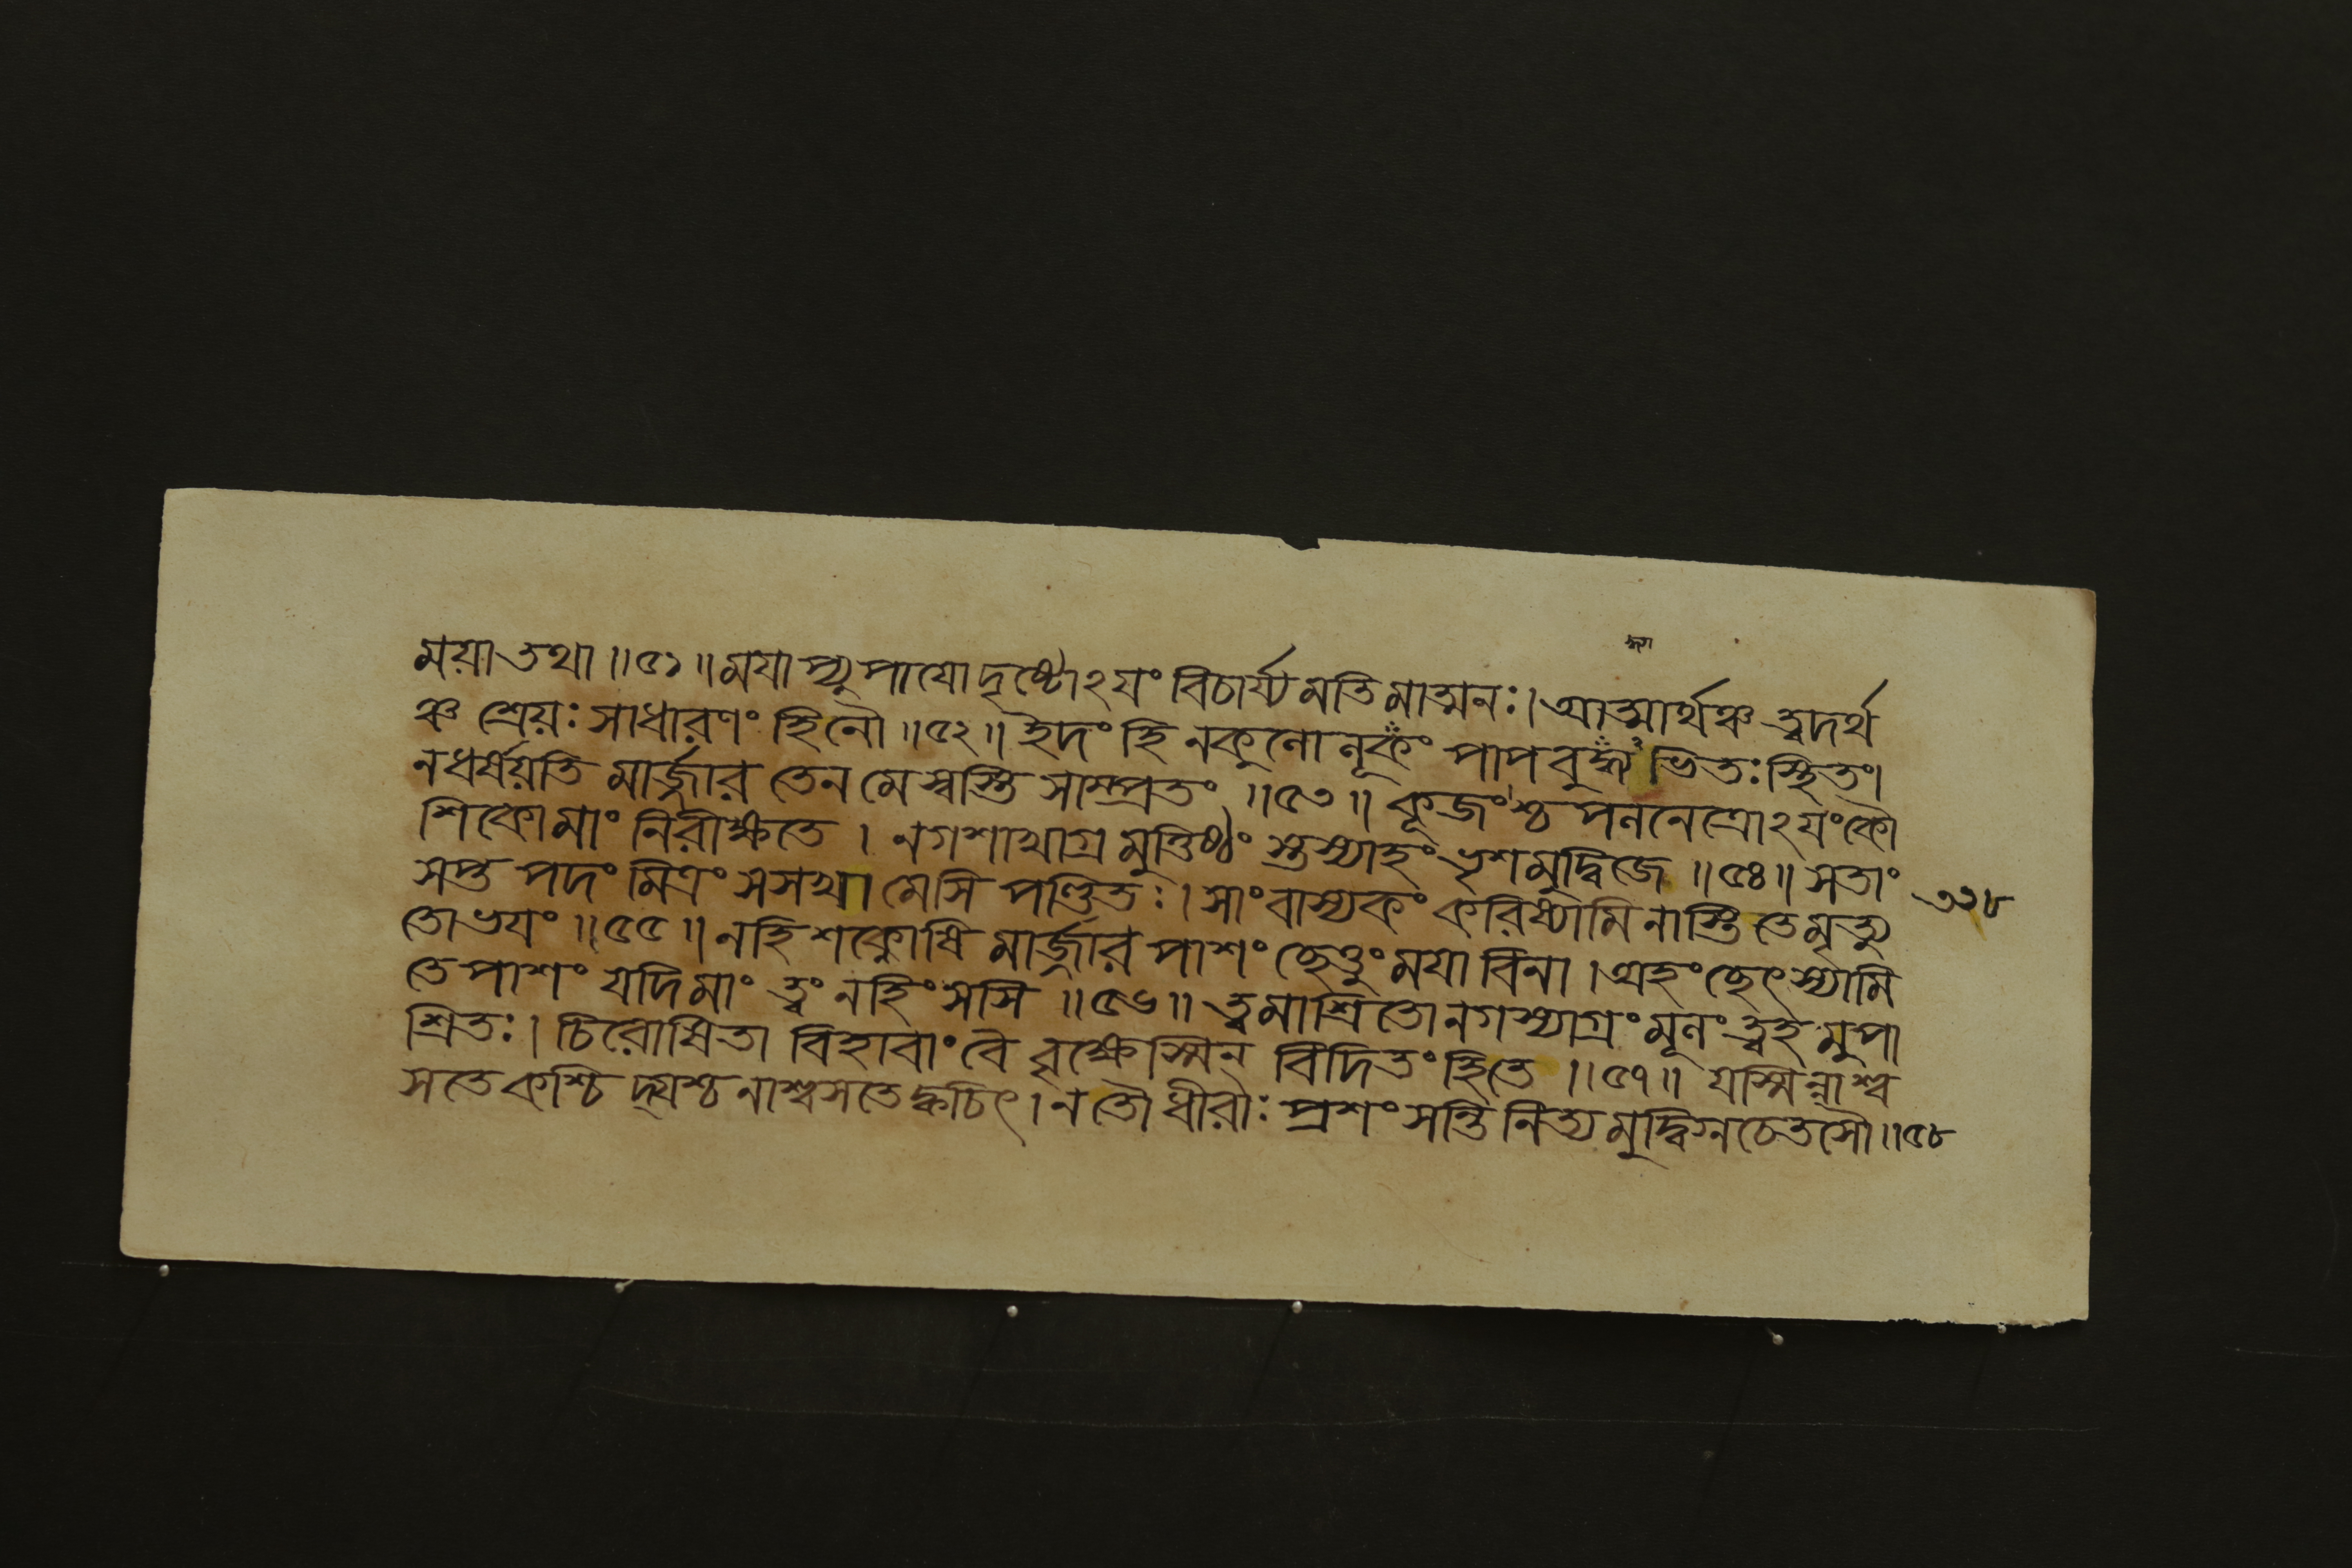 ময়া তথা ॥৫১॥ ময়াপ্যুপায়ো দৃষ্টোঽয়ং বিচার্য্য মতিমাত্মনঃ। আত্মার্থঞ্চ ত্বদর্থ
ঞ্চ শ্রেয়ঃ সাধারণং হিনৌ ॥৫২॥ ইদং হি নকুলো লূকং পাপবুদ্ধ্যা ভিতঃ স্থিতং।
নধর্ষয়তি মার্জ্জার তেন মে স্বস্তি সাম্প্রতং ॥৫৩॥ কূজংশ্চ পলনেত্রোঽয়ং কৌ
শিকোমাং নিরীক্ষতে । নগশাখাগ্রমুত্তিষ্ঠং স্তস্যাহং ভৃশমুদ্বিজে ॥৫৪॥ সতাং
সপ্ত পদং মিত্রং সসখা মেসি পণ্ডিতঃ। সাংবাস্যকং করিষ্যামি নাস্তি তে মৃত্যু
৩২৮
তোভয়ং ॥৫৫॥ নহি শক্নোষি মার্জ্জার পাশং ছেত্তুং ময়া বিনা । অহং ছেৎস্যামি
তে পাশং যদি মাং ত্বং নহিংসসি ॥৫৬॥ ত্বমাশ্রিতো নগস্যাগ্রং মূলং ত্বহমুপা
শ্রিতঃ। চিরোষিতা বিহাবাং বৈ বৃক্ষেস্মিন্ বিদিতং হিতে ॥৫৭॥ যস্মিন্নাশ্ব
সতে কশ্চি দ্যশ্চ নাশ্বসতে ক্বচিৎ। ন তৌ ধীরাঃ প্রশংসন্তি নিত্যমুদ্বিগ্নচেতসৌ॥৫৮